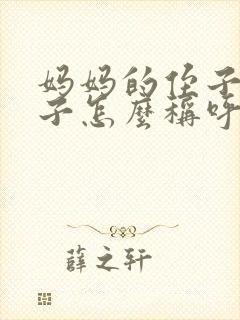 妈妈的侄子
子怎麽稱呼
薛之轩